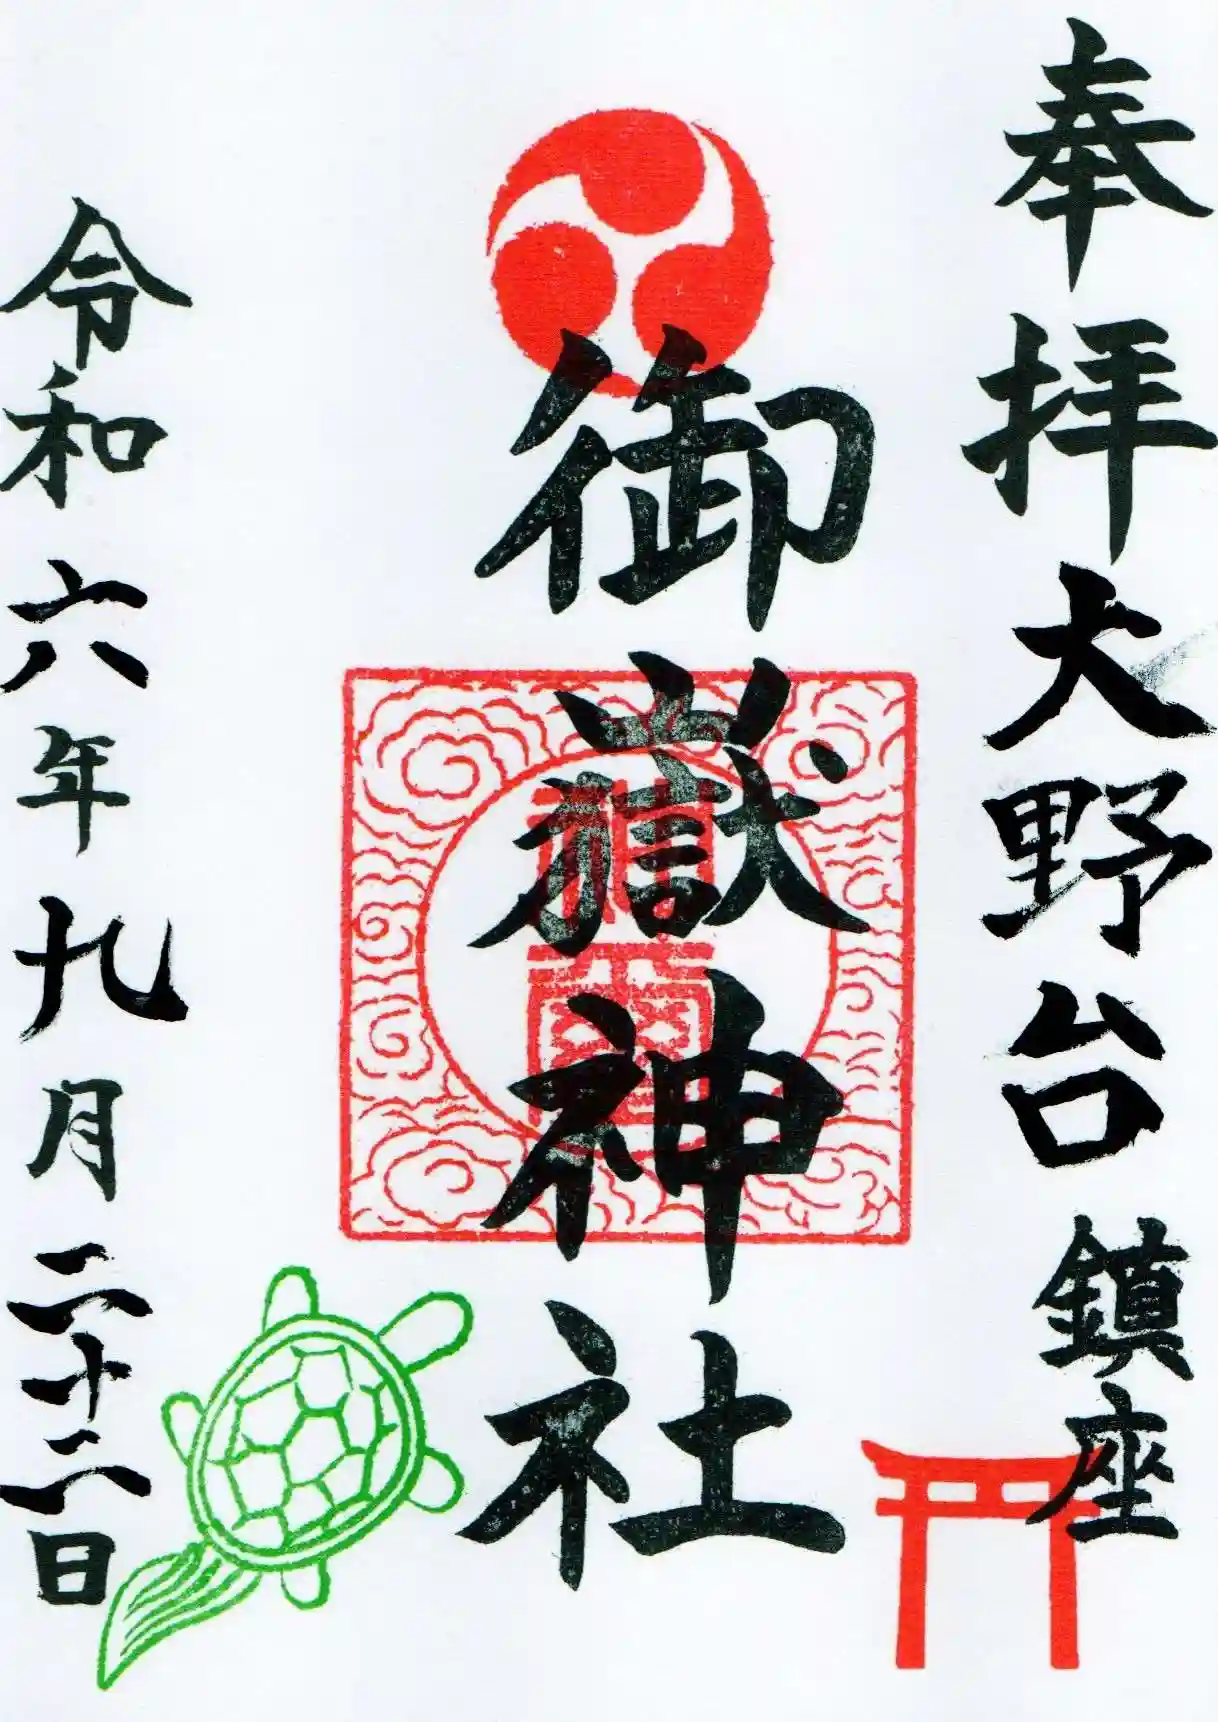 奉拝
大野台鎮座
御嶽神社
令和六年九月二十二日